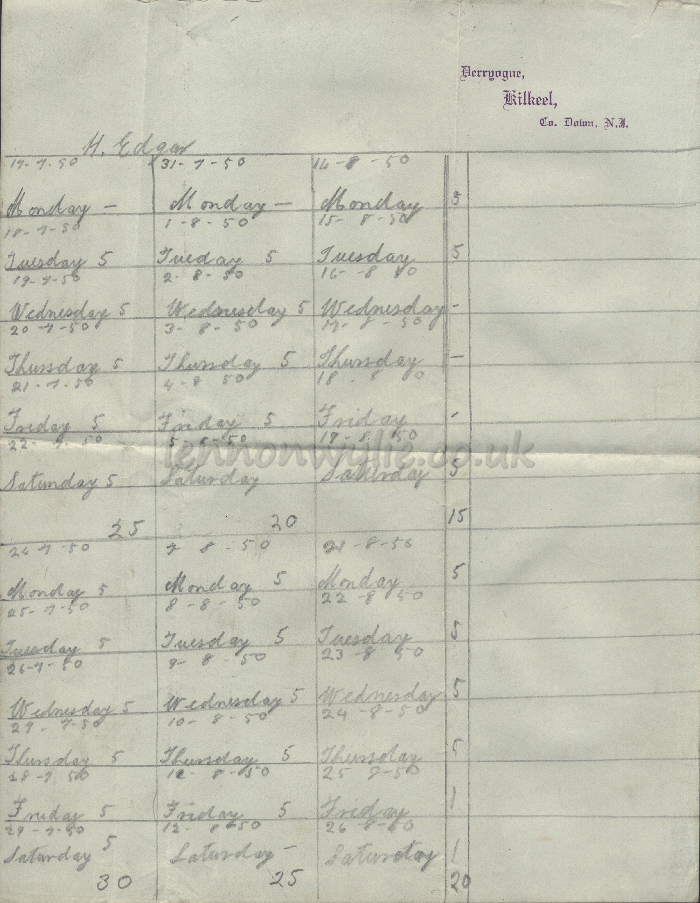 Derryogue,
Kilkeel,
Co. Down, N.I.
H. Edgar
17-7-50 31-7-50 14-8-50
Monday - Monday - Monday 5
18-7-50 1-8-50 15-8-50
Tuesday 5 Tueday 5 Tuesday 5
19-7-50 2-8-50 16-8-50
Wednesday 5 Wednesday 5 Wednesday -
20-7-50 3-8-50 17-8-50
Thursday 5 Thursday 5 Thursday -
21-7-50 4-8 50 18 8 50
Friday 5 Friday 5 Friday -
22-7-50 5-8-50 19-8-50
lennonwylie.co.uk
Saturday 5 Saturday Saturday 5
25 20 15
24-7-50 7 8-50 21-8-50
Monday 5 Monday 5 Monday 5
25-7-50 8-8-50 22-8 50
Tuesday 5 Tuesday 5 Tuesday 5
26-7-50 9-8-50 23-8 50
Wednesday 5 Wednesday 5 Wednesday 5
27-7-50 10-8-50 24-8-50
Thursday 5 Thursday 5 Thursday 5
28-7 50 8-50 25 8-50
Friday 5 Friday 5 Friday 1
29-7-50 12-8-50 26-8-50
Saturday 5 Saturday - Saturday 1
30 25 20